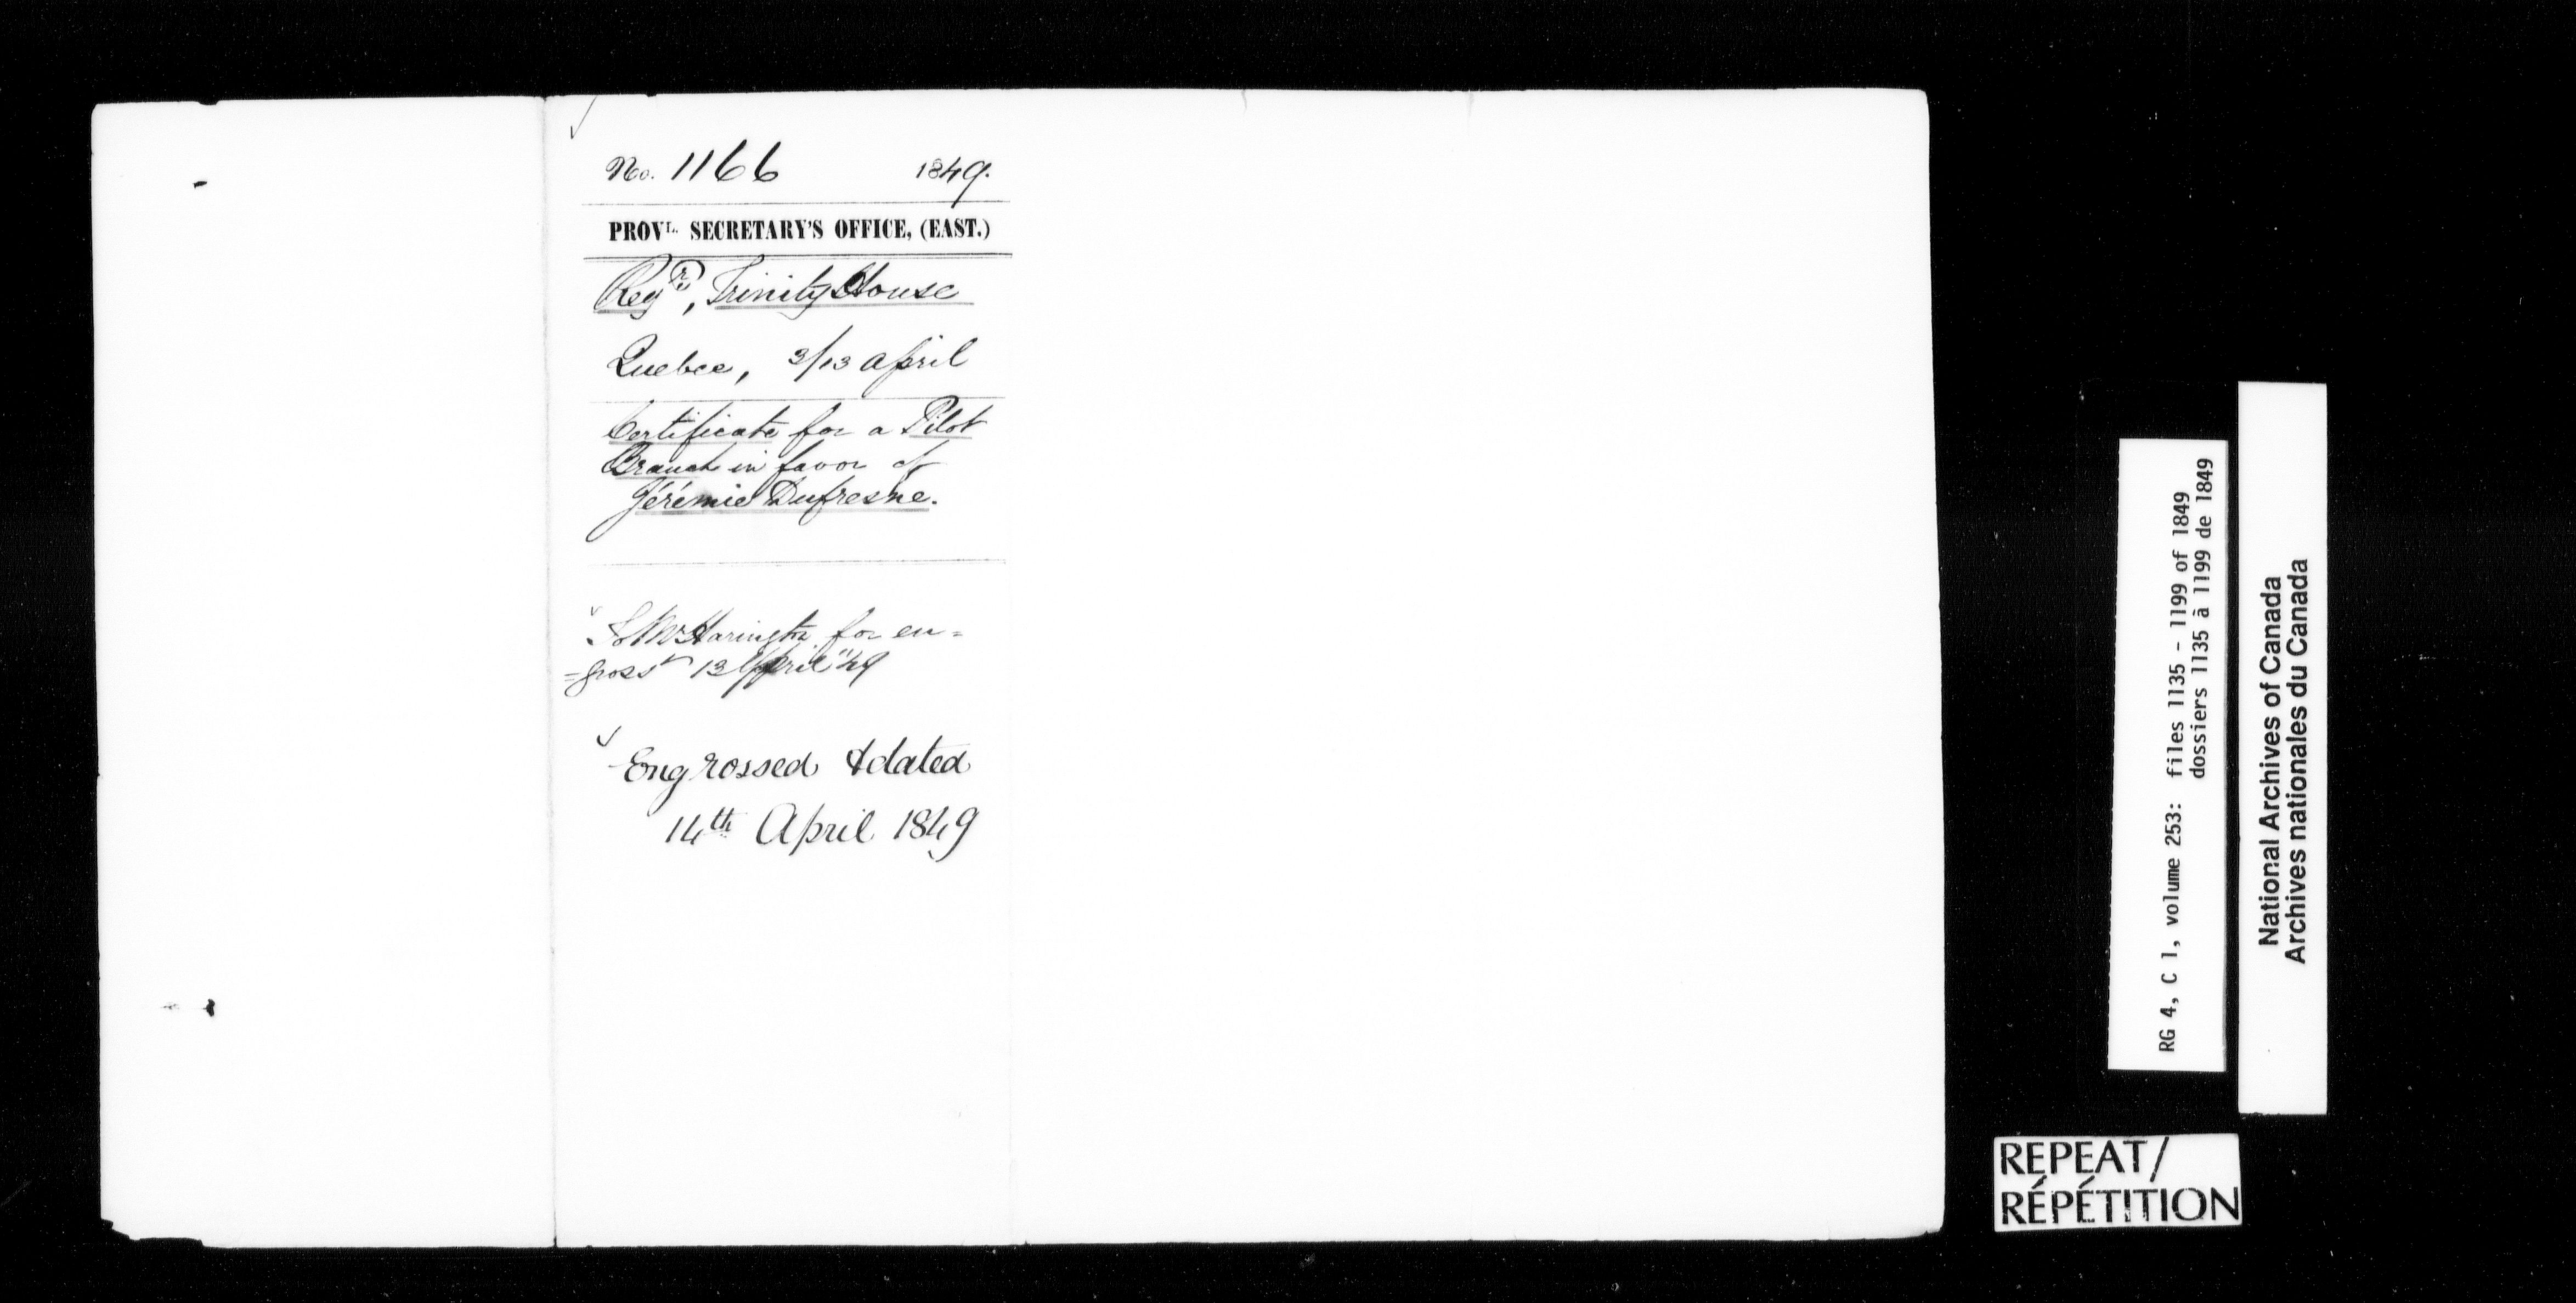 No. 1166 1849.
PROVL. SECRETARY'S OFFICE, (EAST.)
Regr, Trinity House
Quebec, 3/13 April
Certificate for a Pilot
Branch in favor of
Jérémie Dufresne.
To Mr Harington for en=
=grosst 13 April "49
Engrossed & dated
14th April 1849
RG 4, C 1, volume 253: files 1135 - 1199 of 1849
dossiers 1135 à 1199 de 1849
National Archives of Canada
Archives nationales du Canada
REPEAT/
RÉPÉTITION